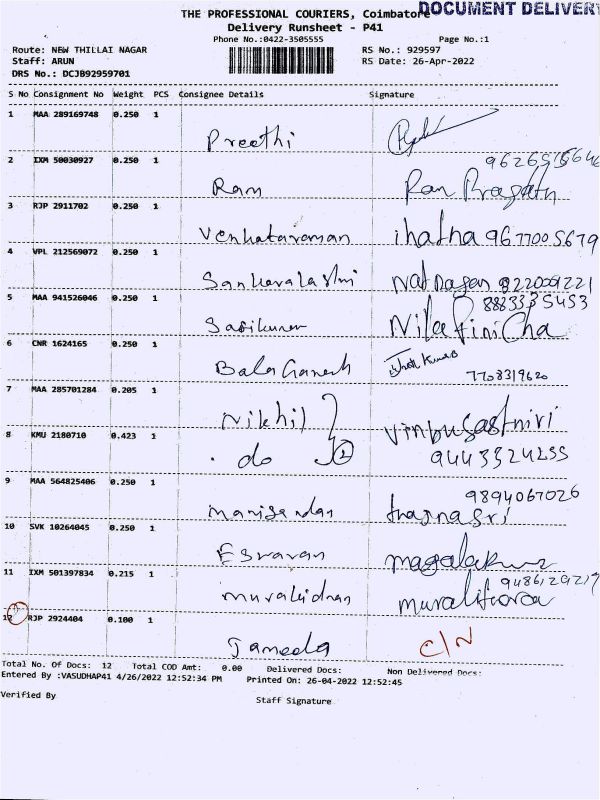 THE PROFESSIONAL COURIERS, Coimbatore
DOCUMENT DELIVERY
Delivery Runsheet - P41
Phone No.:0422-3505555 Page No.:1
Route: NEW THILLAI NAGAR RS No.: 929597
Staff: ARUN RS Date: 26-Apr-2022
DRS No.: DCJB92959701
S No Consignment No Weight PCS Consignee Details Signature
1 MAA 289169748 0.250 1
Preethi
2 IXM 50030927 0.250 1
Ram
3 RJP 2911702 0.250 1
Venkataraman 9677005679
4 VPL 212569072 0.250 1
Natrajan 922009221
5 MAA 941526046 0.250 1
Sasikumar
6 CNR 1624165 0.250 1
Bala Ganesh 7708319620
7 MAA 285701284 0.205 1
Nikhil
8 KMU 2180710 0.423 1
do 2 9443324255
9 MAA 564825406 0.250 1
9894067026
10 SVK 10264045 0.250 1
Eswaran
11 IXM 501397834 0.215 1
12 RJP 2924404 0.100 1
C/N
Total No. Of Docs: 12 Total COD Amt: 0.00 Delivered Docs: Non Delivered Docs:
Entered By :VASUDHAP41 4/26/2022 12:52:34 PM Printed On: 26-04-2022 12:52:45
Verified By Staff Signature